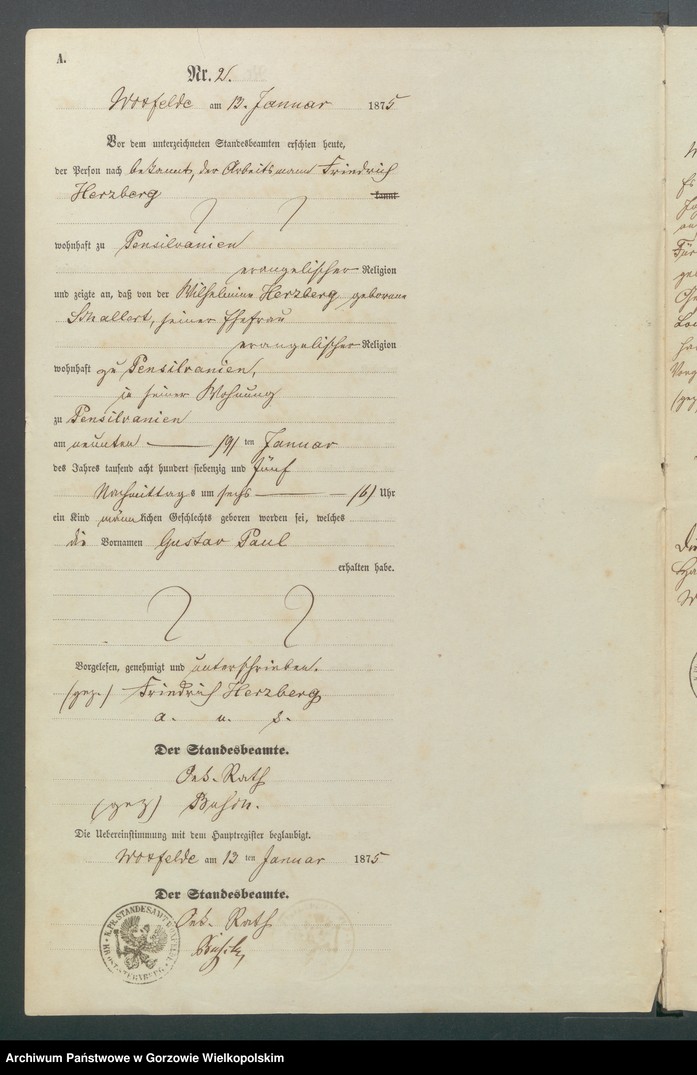 A.
Nr. 2.
Woxfelde am 12. Januar 1875
Vor dem unterzeichneten Standesbeamten erschien heute,
der Person nach bekannt, der Arbeitsmann Friedrich
Herzberg kannt
wohnhaft zu Pensilvanien
evangelischer Religion
und zeigte an, daß von der Wilhelmine Herzberg geborene
Schallert, seiner Ehefrau
evangelischer Religion
wohnhaft zu Pensilvanien,
in seiner Wohnung
zu Pensilvanien
am neunten /9/ ten Januar
des Jahres tausend acht hundert siebenzig und fünf
Nachmittags um sechs /6/ Uhr
ein Kind männlichen Geschlechts geboren worden sei, welches
die Vornamen Gustav Paul
erhalten habe.
Vorgelesen, genehmigt und unterschrieben.
(gez.) Friedrich Herzberg
a. u. s.
Der Standesbeamte.
Oek. Rath
(gez)
Die Uebereinstimmung mit dem Hauptregister beglaubigt.
Woxfelde am 12 ten Januar 1875
Der Standesbeamte.
Oek. Rath
K. PR. STANDESAMT
Archiwum Państwowe w Gorzowie Wielkopolskim